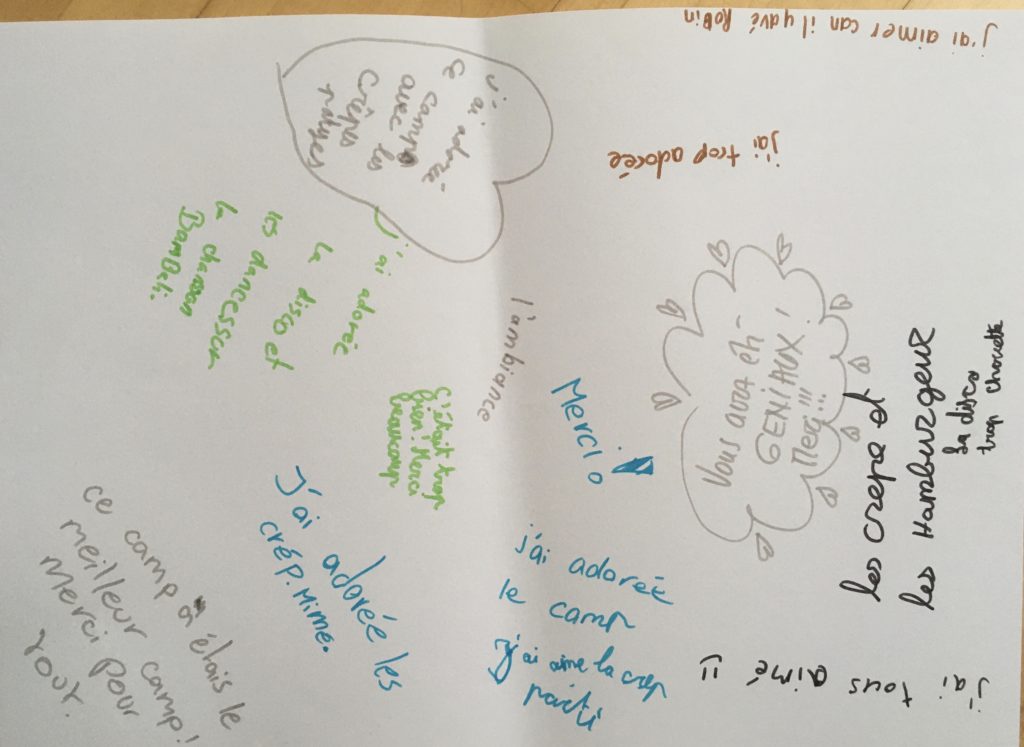 j'ai aimer can il y avé RoBin
j'ai trop adorée
j'ai adoré
ce camp
avec les
crêpes
j'ai adorée
la disco et
les
la chanson
l'ambiance
C'était trop
bien! Merci
beaucoup
Merci
Vous
GENIAUX!
!!!
les crepe et
les Hamburgeur
la disco
trop chouette
j'ai adorée les
crép. Mime.
j'ai adorée
le camp
j'ai aime la crep
j'ai tous aimé
ce camp à étais le
meilleur camp!
Merci pour
tout.